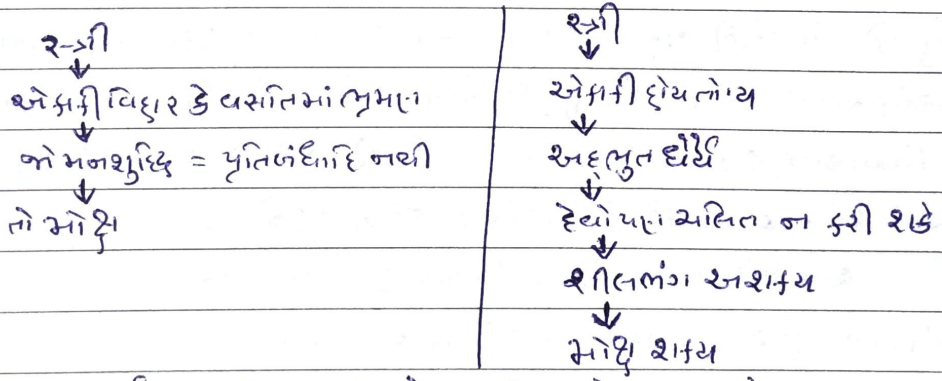 સ્ત્રી
↓
એકાકી વિહાર કે વસતિમાં ભ્રમણ
↓
જો મનશુદ્ધિ = પ્રતિબંધાદિ નથી
↓
તો મોક્ષ
સ્ત્રી
↓
એકાકી હોય તો'ય
↓
અદ્ભુત ધૈર્ય
↓
દેવો પણ ચલિત ન કરી શકે
↓
શીલભંગ અશક્ય
↓
મોક્ષ શક્ય